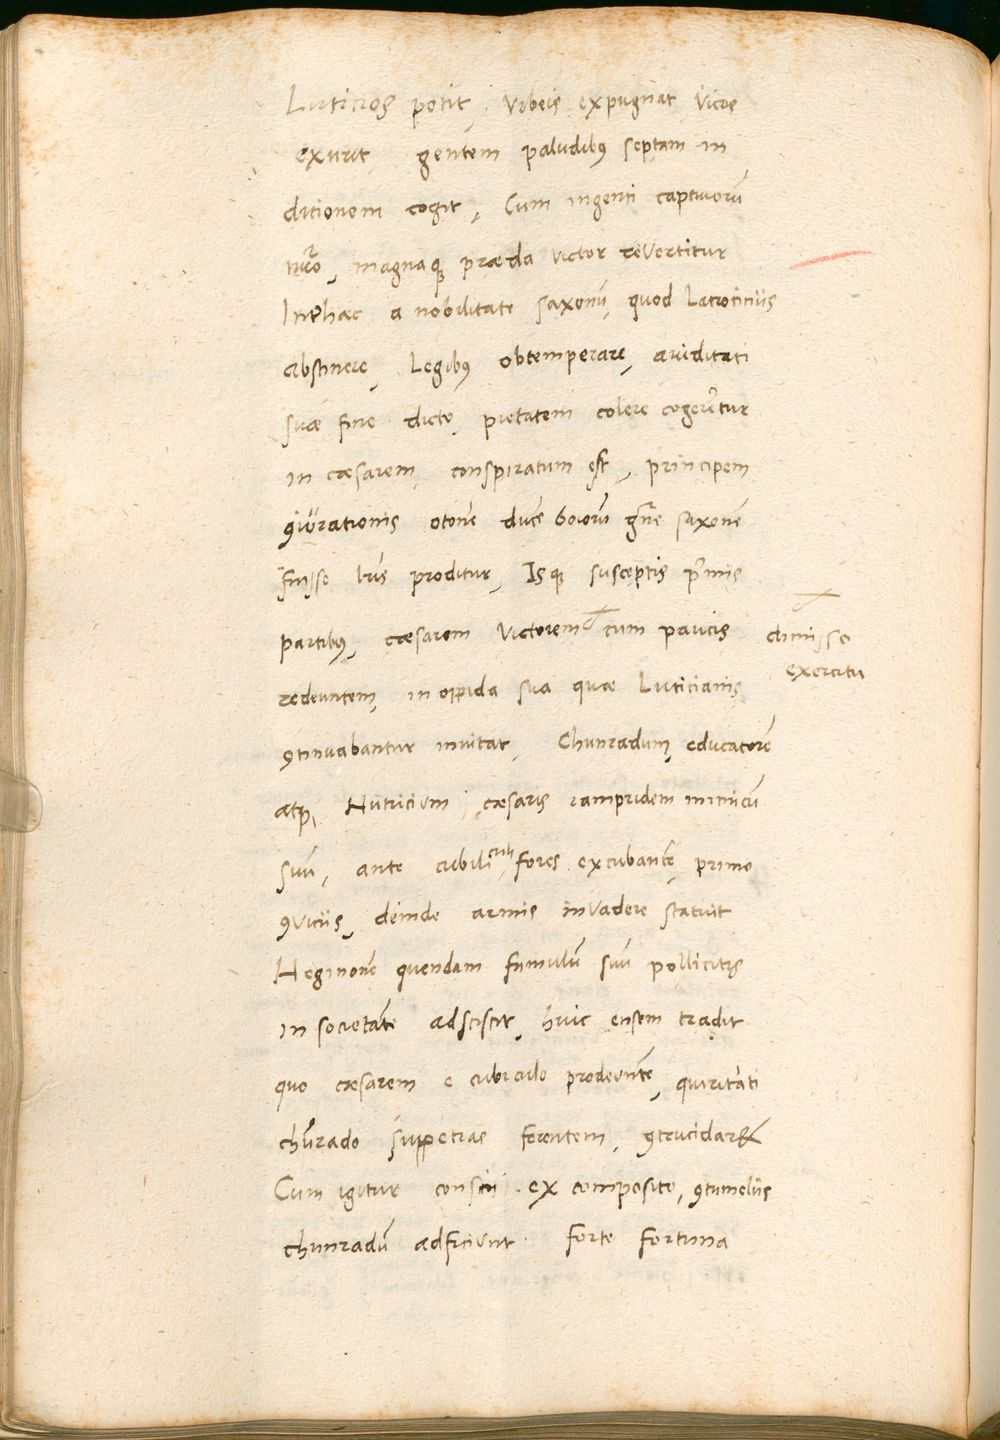 Luticios petit, Vrbeis expugnat, vicos
exurit gentem paludibꝰ septam in
ditionem cogit, Cum ingenti captiuorũ
nũro, magnaqꝫ præda victor reVertitur
Interhæc a nobilitate saxonũ, quod Latrociniis
abstinere, Legibꝰ obtemperare, auiditati
suæ fine dicto, pietatem colere cogerẽtur
in cæsarem, conspiratum est, principem
ꝯiurationis otonẽ ducẽ boiorũ gñe saxonẽ
fuisse lr̃is proditur, Is qꝫ susceptis p̃mis
partibꝰ, cæsarem Victorem cum paucis
dimisso
exercitu
redeuntem, in oppida sua quæ Luticianis
ꝯtinuabantur inuitat, Chunradum, educatorẽ
atqꝫ Nutricium cæsaris iampridem inimicũ
suũ, ante cubiliculi fores excubantẽ, primo
ꝯuiciis, deinde armis inVadere statuit
Heginonẽ quendam famulũ suũ pollicitis
in societatẽ adsciscit, huic ensem tradit
quo cæsarem e cubiculo prodeuntẽ, quiritati
chũrado suppetias ferentem, ꝯtrucidaret
Cum igitur conscii ex composito, ꝯtumeliis
chunradũ adficiunt forte fortuna